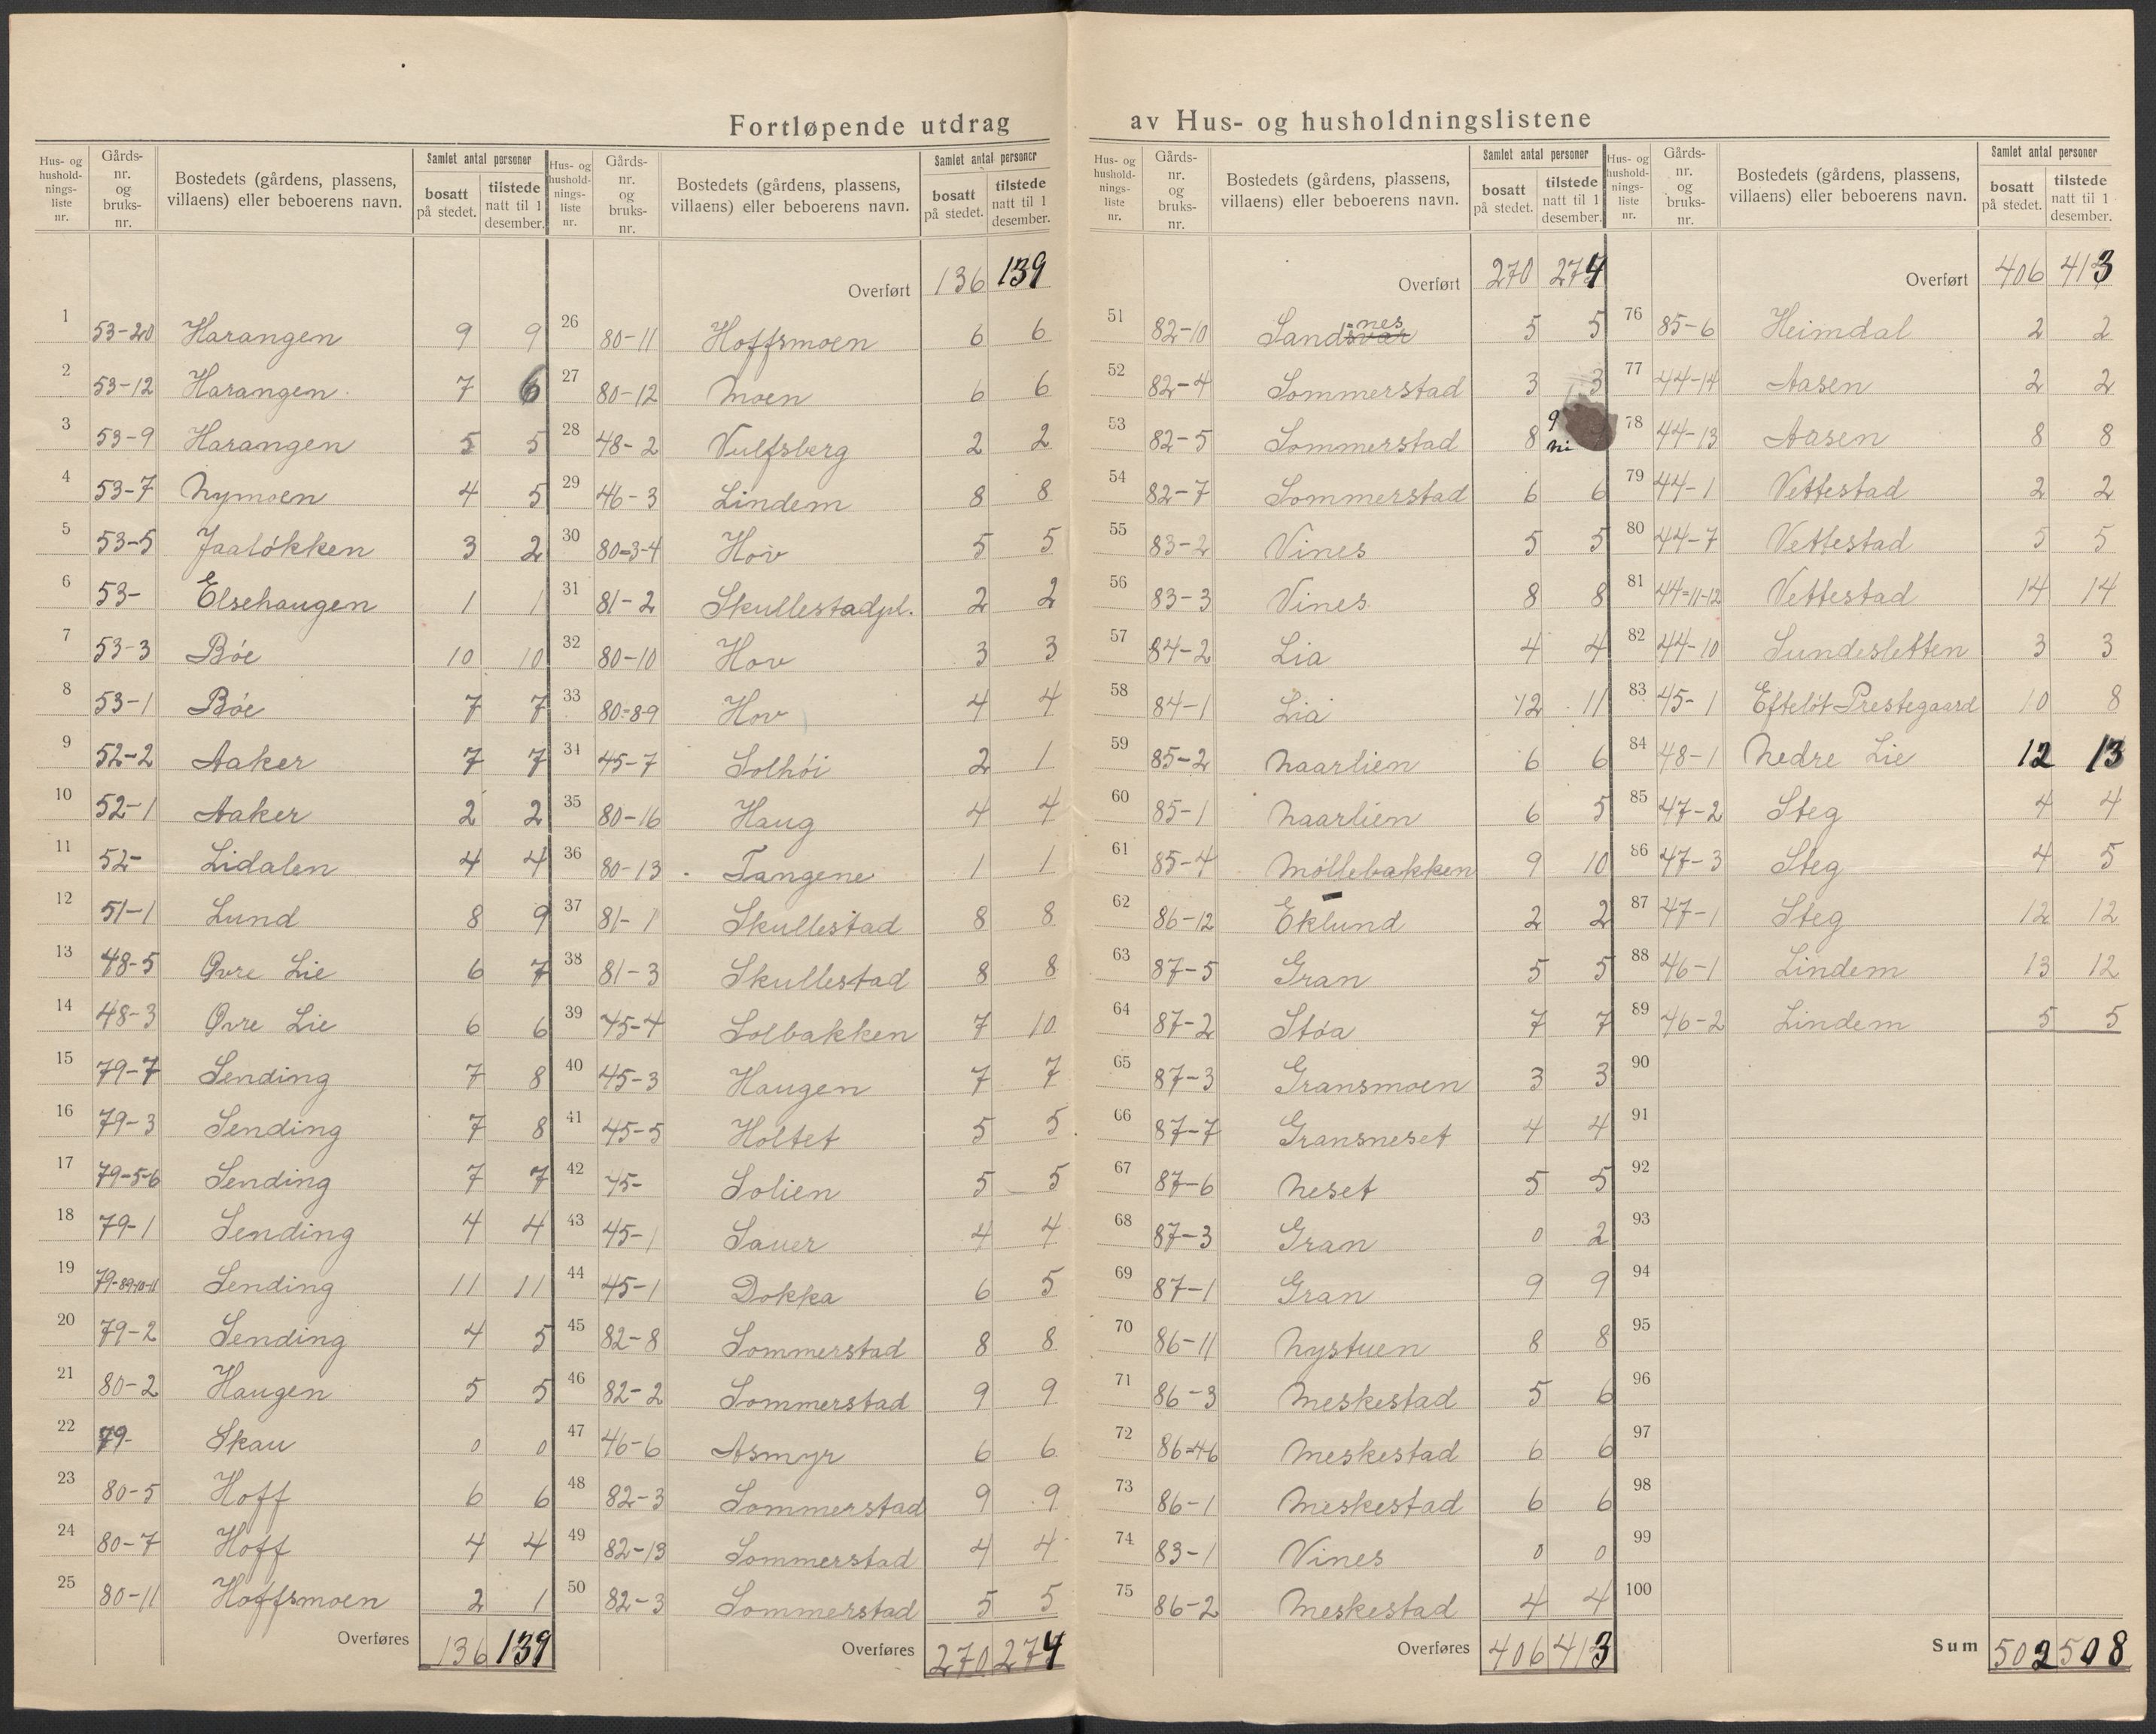 Fortløpende utdrag av Hus- og husholdningslistene
Hus- og husholdnings-liste nr. Gårds-nr. og bruks-nr. Bostedets (gårdens, plassens, villaens) eller beboerens navn. Samlet antal personer bosatt på stedet. tilstede natt til 1 desember.
1 53-20 Harangen 9 9
2 53-12 Harangen 7 6
3 53-9 Harangen 5 5
4 53-7 Nymoen 4 5
5 53-5 Jaaløkken 3 2
6 53- Elsehaugen 1 1
7 53-3 Bøe 10 10
8 53-1 Bøe 7 7
9 52-2 Aaker 7 7
10 52-1 Aaker 2 2
11 52- Lidalen 4 4
12 51-1 Lund 8 9
13 48-5 Øvre Lie 6 7
14 48-3 Øvre Lie 6 6
15 79-7 Sending 7 8
16 79-3 Sending 7 8
17 79-5-6 Sending 7 7
18 79-1 Sending 4 4
19 79-8-9-10-11 Sending 11 11
20 79-2 Sending 4 5
21 80-2 Haugen 5 5
22 79- Skau 0 0
23 80-5 Hoff 6 6
24 80-7 Hoff 4 4
25 80-11 Hoffsmoen 2 1
Overføres 136 139
Hus- og husholdnings-liste nr. Gårds-nr. og bruks-nr. Bostedets (gårdens, plassens, villaens) eller beboerens navn. Samlet antal personer bosatt på stedet. tilstede natt til 1 desember.
Overført 136 139
26 80-11 Hoffsmoen 6 6
27 80-12 Moen 6 6
28 48-2 Vulfsberg 2 2
29 46-3 Lindem 8 8
30 80=3-4 Hov 5 5
31 81-2 Skullestadpl. 2 2
32 80-10 Hov 3 3
33 80=8-9 Hov 4 4
34 45-7 Solhøi 2 1
35 80-16 Haug 4 4
36 80-13 Tangene 1 1
37 81-1 Skullestad 8 8
38 81-3 Skullestad 8 8
39 45-4 Solbakken 7 10
40 45-3 Haugen 7 7
41 45-5 Holtet 5 5
42 45- Solien 5 5
43 45-1 Sauer 4 4
44 45-1 Dokka 6 5
45 82-8 Sommerstad 8 8
46 82-2 Sommerstad 9 9
47 46-6 Asmyr 6 6
48 82-3 Sommerstad 9 9
49 82-13 Sommerstad 4 4
50 82-3 Sommerstad 5 5
Overføres 270 274
Hus- og husholdnings-liste nr. Gårds-nr. og bruks-nr. Bostedets (gårdens, plassens, villaens) eller beboerens navn. Samlet antal personer bosatt på stedet. tilstede natt til 1 desember.
Overført 270 274
51 82-10 Sandsvær nes 5 5
52 82-4 Sommerstad 3 3
53 82-5 Sommerstad 8 9 ni
54 82-7 Sommerstad 6 6
55 83-2 Vines 5 5
56 83-3 Vines 8 8
57 84-2 Lia 4 4
58 84-1 Lia 12 11
59 85-2 Naarlien 6 6
60 85-1 Naarlien 6 5
61 85-4 Møllebakken 9 10
62 86-12 Eklund 2 2
63 87-5 Gran 5 5
64 87-2 Støa 7 7
65 87-3 Gransmoen 3 3
66 87-7 Gransneset 4 4
67 87-6 Neset 5 5
68 87-3 Gran 0 2
69 87-1 Gran 9 9
70 86-11 Nystuen 8 8
71 86-3 Meskestad 5 6
72 86=4-6 Meskestad 6 6
73 86-1 Meskestad 6 6
74 83-1 Vines 0 0
75 86-2 Meskestad 4 4
Overføres 406 413
Hus- og husholdnings-liste nr. Gårds-nr. og bruks-nr. Bostedets (gårdens, plassens, villaens) eller beboerens navn. Samlet antal personer bosatt på stedet. tilstede natt til 1 desember.
Overført 406 413
76 85-6 Heimdal 2 2
77 44-14 Aasen 2 2
78 44-13 Aasen 8 8
79 44-1 Vettestad 2 2
80 44-7 Vettestad 5 5
81 44=11-12 Vettestad 14 14
82 44-10 Sundesletten 3 3
83 45-1 Efteløt Prestegaard 10 8
84 48-1 Nedre Lie 12 13
85 47-2 Steg 4 4
86 47-3 Steg 4 5
87 47-1 Steg 12 12
88 46-1 Lindem 13 12
89 46-2 Lindem 5 5
90
91
92
93
94
95
96
97
98
99
100
Sum 502 508